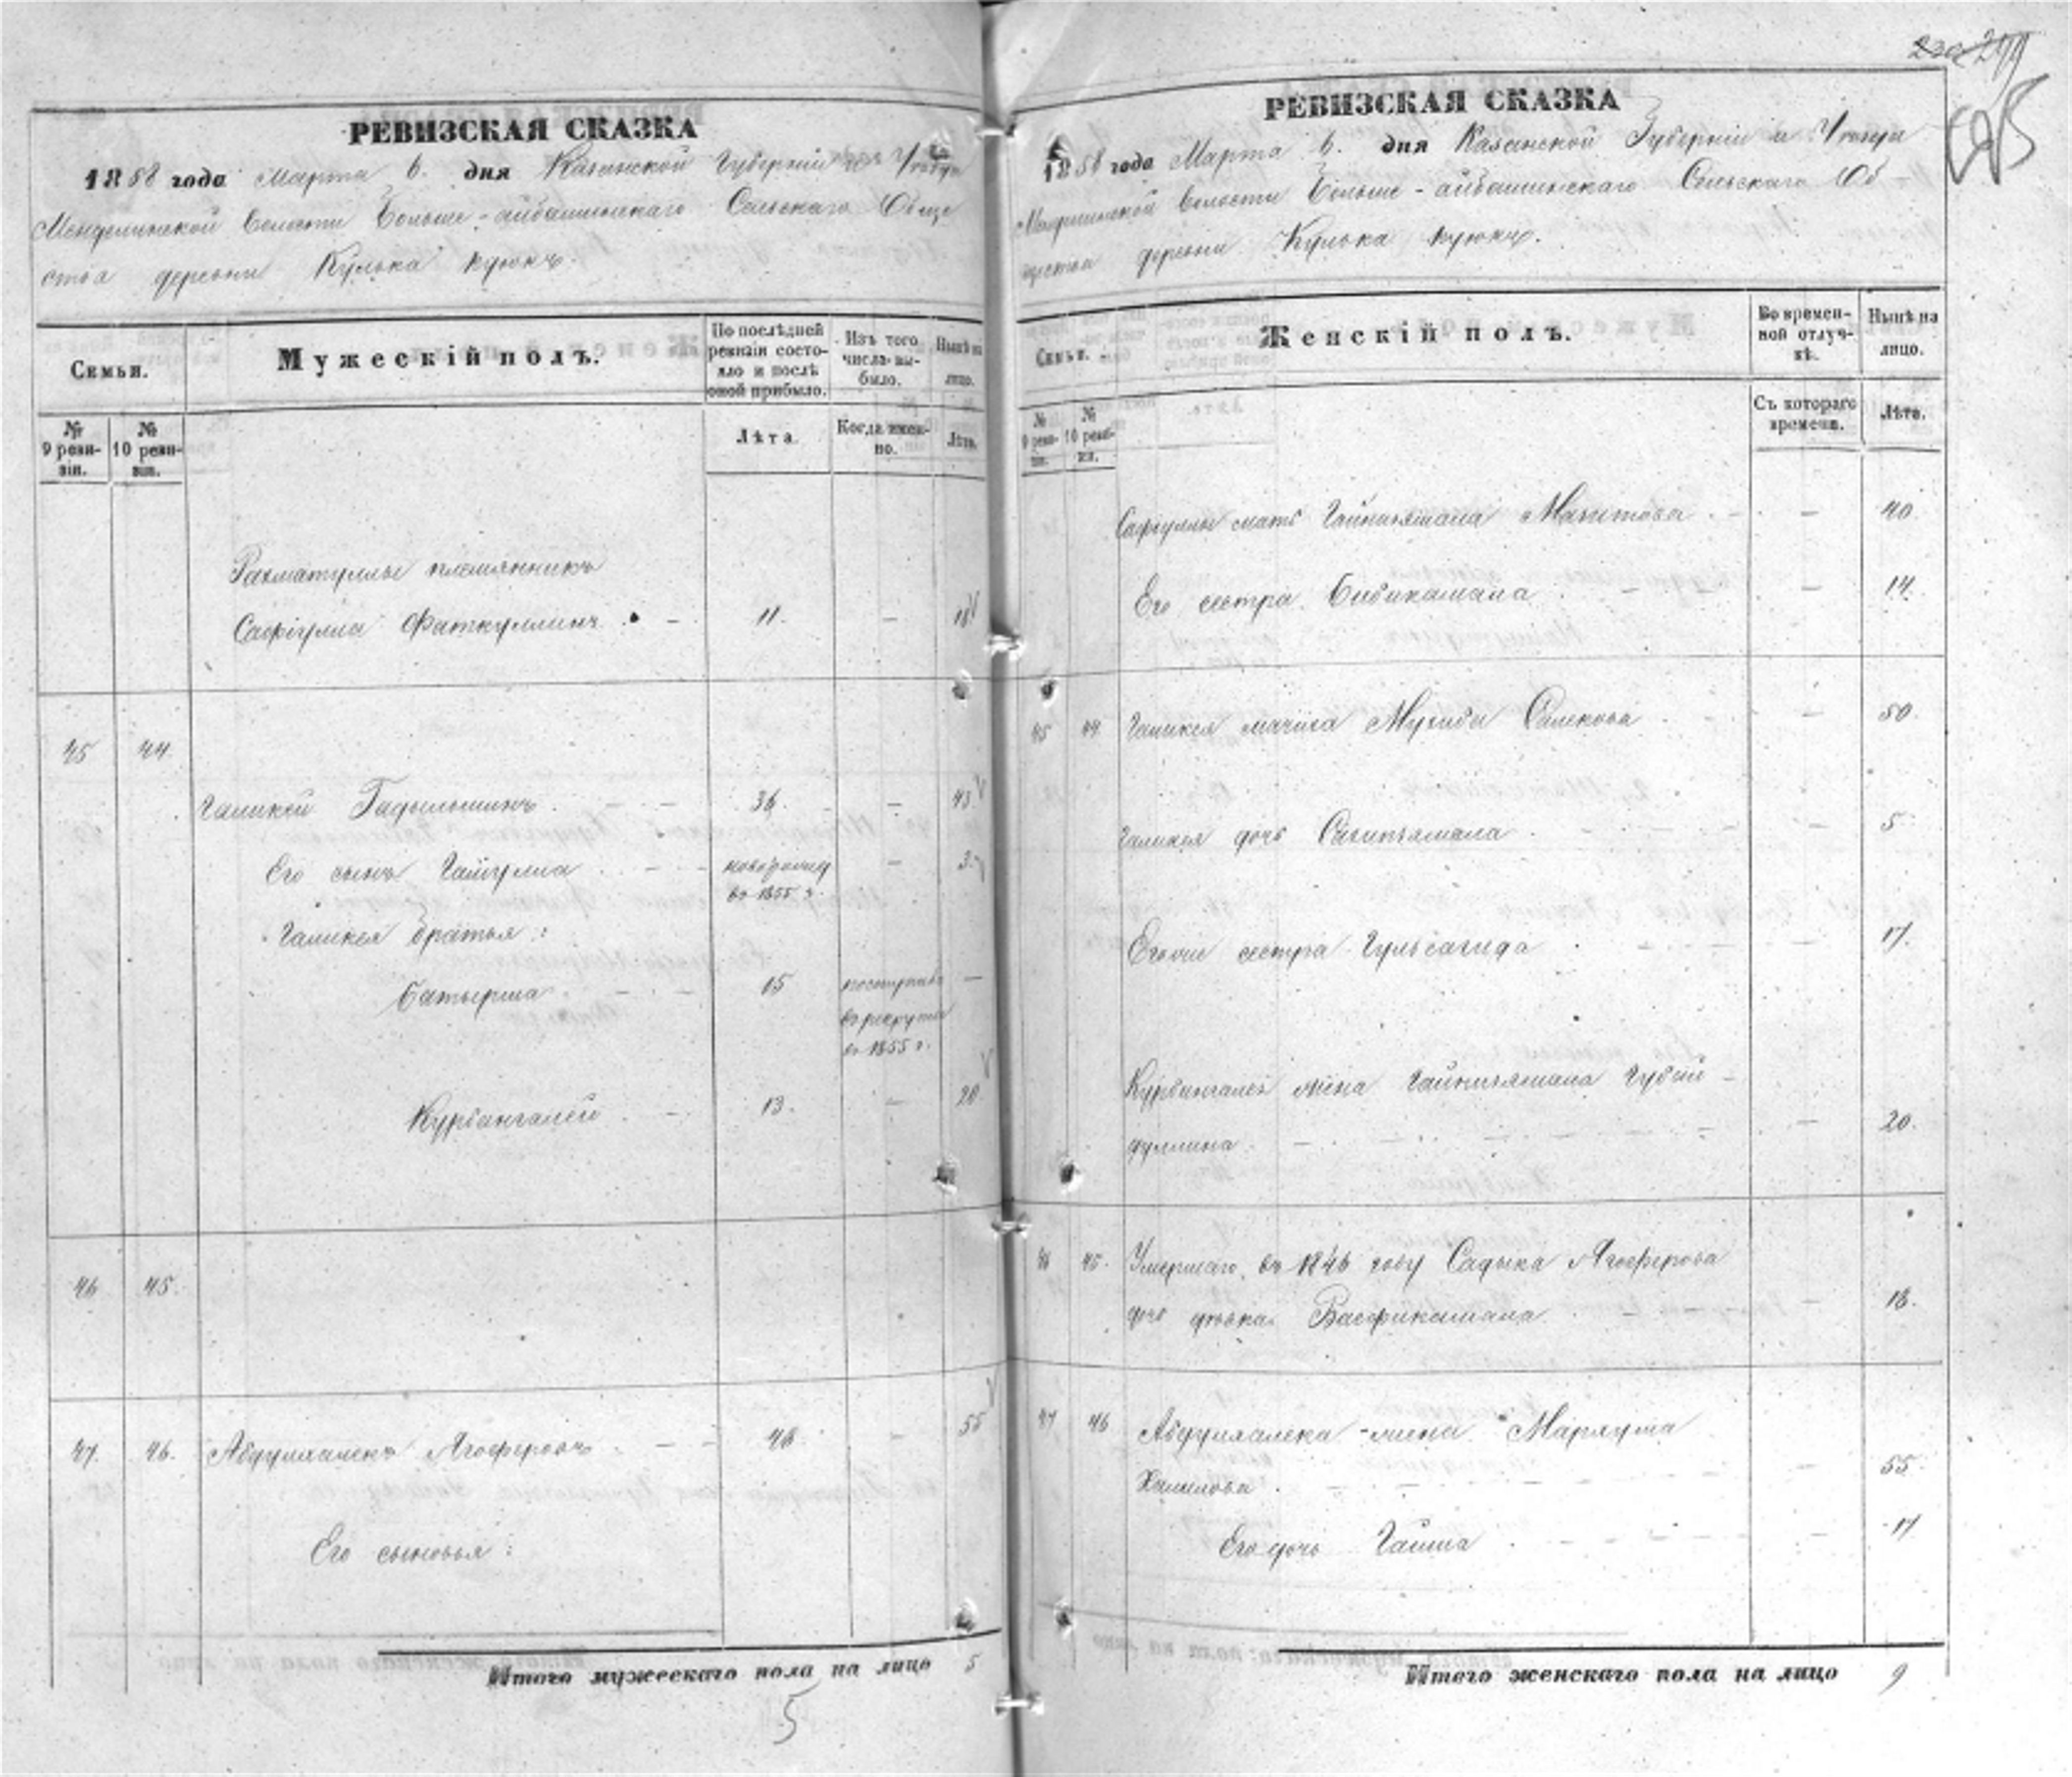 РЕВИЗСКАЯ СКАЗКА
1858 года Марта 6. дня Казанской Губерніи и Уѣзда
Менделинской Волости Больше-айбашинскаго Сельскаго Обще
ства деревни Кулька куюкъ.
Семьи.
Мужескій полъ.
По послѣдней ревизіи состояло и послѣ оной прибыло.
Изъ того числа выбыло.
Нынѣ на лицо.
№ 9 ревизіи.
№ 10 ревизіи.
Лѣта.
Когда именно.
Лѣта.
Рахматуллы племянникъ
Сафіулла Фаткуллинъ . - 11. - 18
45 44.
Галикей Гадильшинъ . - - 36. - 43
Его сынъ Гайнулла . - - новорожд - 3.
въ 1855 г.
Галикея братья :
Батырша . - - 15 поступилъ -
въ рекруты
въ 1855 г.
Курбангалей . - 13. - 20
46 45.
47. 46. Абдулхаликъ Ягоферовъ . - - 48. - 55
Его сыновья :
Итого мужескаго пола на лицо 5
5
РЕВИЗСКАЯ СКАЗКА
1858 года Марта 6. дня Казанской Губерніи и Уѣзда
Волости Больше-айбашинскаго Сельскаго Об-
щества деревни Кулька куюкъ.
Семьи.
Женскій полъ.
Во временной отлучкѣ.
Нынѣ на лицо.
№ 9 ревизіи.
№ 10 ревизіи.
Съ котораго времени.
Лѣта.
Сафіуллы мать Гайнижямала Магитова . - - 40.
Его сестра Бибикамала . - - 14.
45 44 Галикея мачиха Мугиби Салекова . - - 50.
Галикея дочь Сагитжамала . - - 5
Его же сестра Гульсагида . - - 17.
Курбангалея жена Гайнижямала Губай-
дуллина . - - 20.
46 45. Умершаго въ 1846 году Садыка Ягоферова
дочь дѣвка Васфикамала . - - 18.
47 46 Абдулхалека жена Марлума
Халилова . - - 55.
Его дочь Гайша . - - 17
Итого женскаго пола на лицо 9